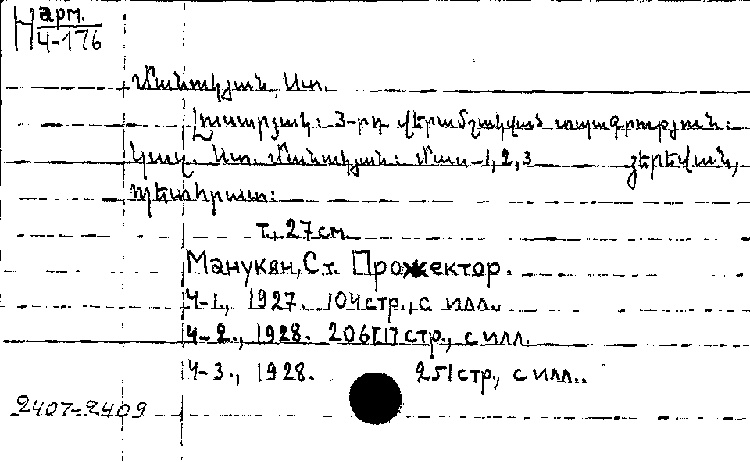 Н арм.
4-176
Մանուկյան, Ստ.
Լուսարձակ: 3-րդ վերամշակված տպագրություն:
Կազմ. Ստ. Մանուկյան: Մաս-1,2,3 Յերեվան,
պետհրատ:
т., 27 см
Манукян, Ст. Прожектор.
Ч-1., 1927. 104 стр., с илл.
Ч-2., 1928. 206[1] стр., с илл.
Ч-3., 1928. 251 стр., с илл..
2407-2409